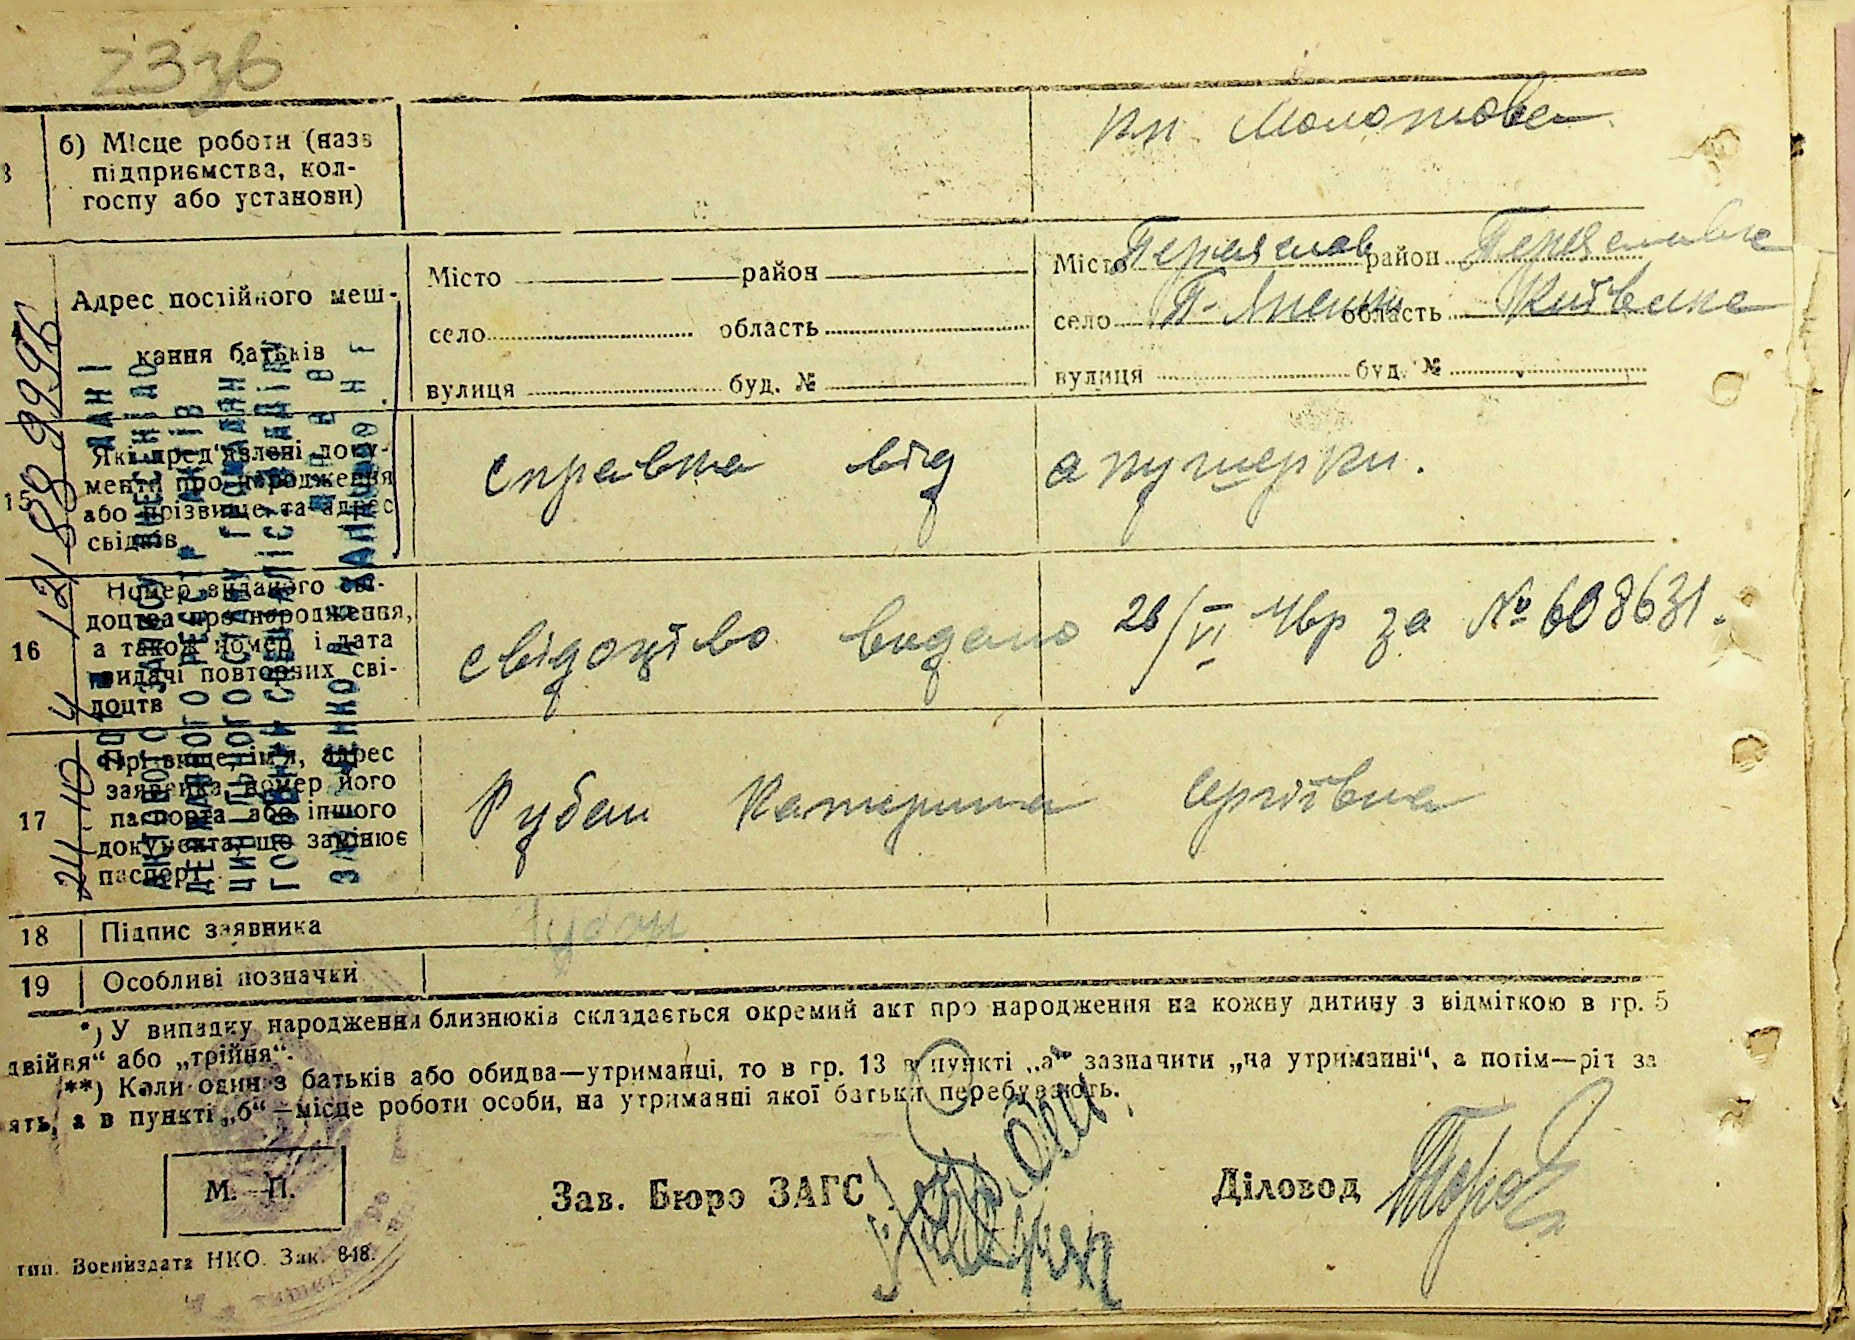 23зв
б) Місце роботи (назв
підприємства, кол-
госпу або установи)
Адрес постійного меш-
кання батьків
Місто район
село область
вулиця буд. №
Місто Переяслав район Переяславськ
село область Київська
вулиця буд. №
15
Які пред'явлені доку-
менти про народження
або прізвище та адрес
свідків
справка від акушерки.
16
Номер виданого сві-
доцтва про народження,
а також номер і дата
видачі повторних сві-
доцтв
свідоцтво видано 26/VI 44р за № 608631.
17
Прізвище, ім'я, адрес
заявника, номер його
паспорта або іншого
документа, що замінює
паспорт
Рубан Катерина Сергіївна
18 Підпис заявника
Рубан
19 Особливі позначки
*) У випадку народження близнюків складається окремий акт про народження на кожну дитину з відміткою в гр. 5
двійня“ або „трійня“.
**) Коли один з батьків або обидва—утриманці, то в гр. 13 в пункті „а“ зазначити „на утриманні“, а потім—ріт за
ять, а в пункті „б“—місце роботи особи, на утриманні якої батьки перебувають.
М. П.
Зав. Бюро ЗАГС
Діловод
тип. Воениздата НКО. Зак. 848.